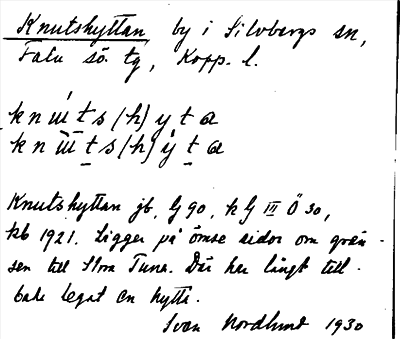 Knutshyttan, by i Silvbergs sn,
Falu sö. tg, Kopp. l.
knuts(h)yta
knuts(h)yta
Knutshyttan jb, G 90, k G III Ö 30,
kb 1921. Ligger på ömse sidor om grän-
sen till Stora Tuna. Där har långt till-
baka legat en hytta.
Sven Nordlund 1930